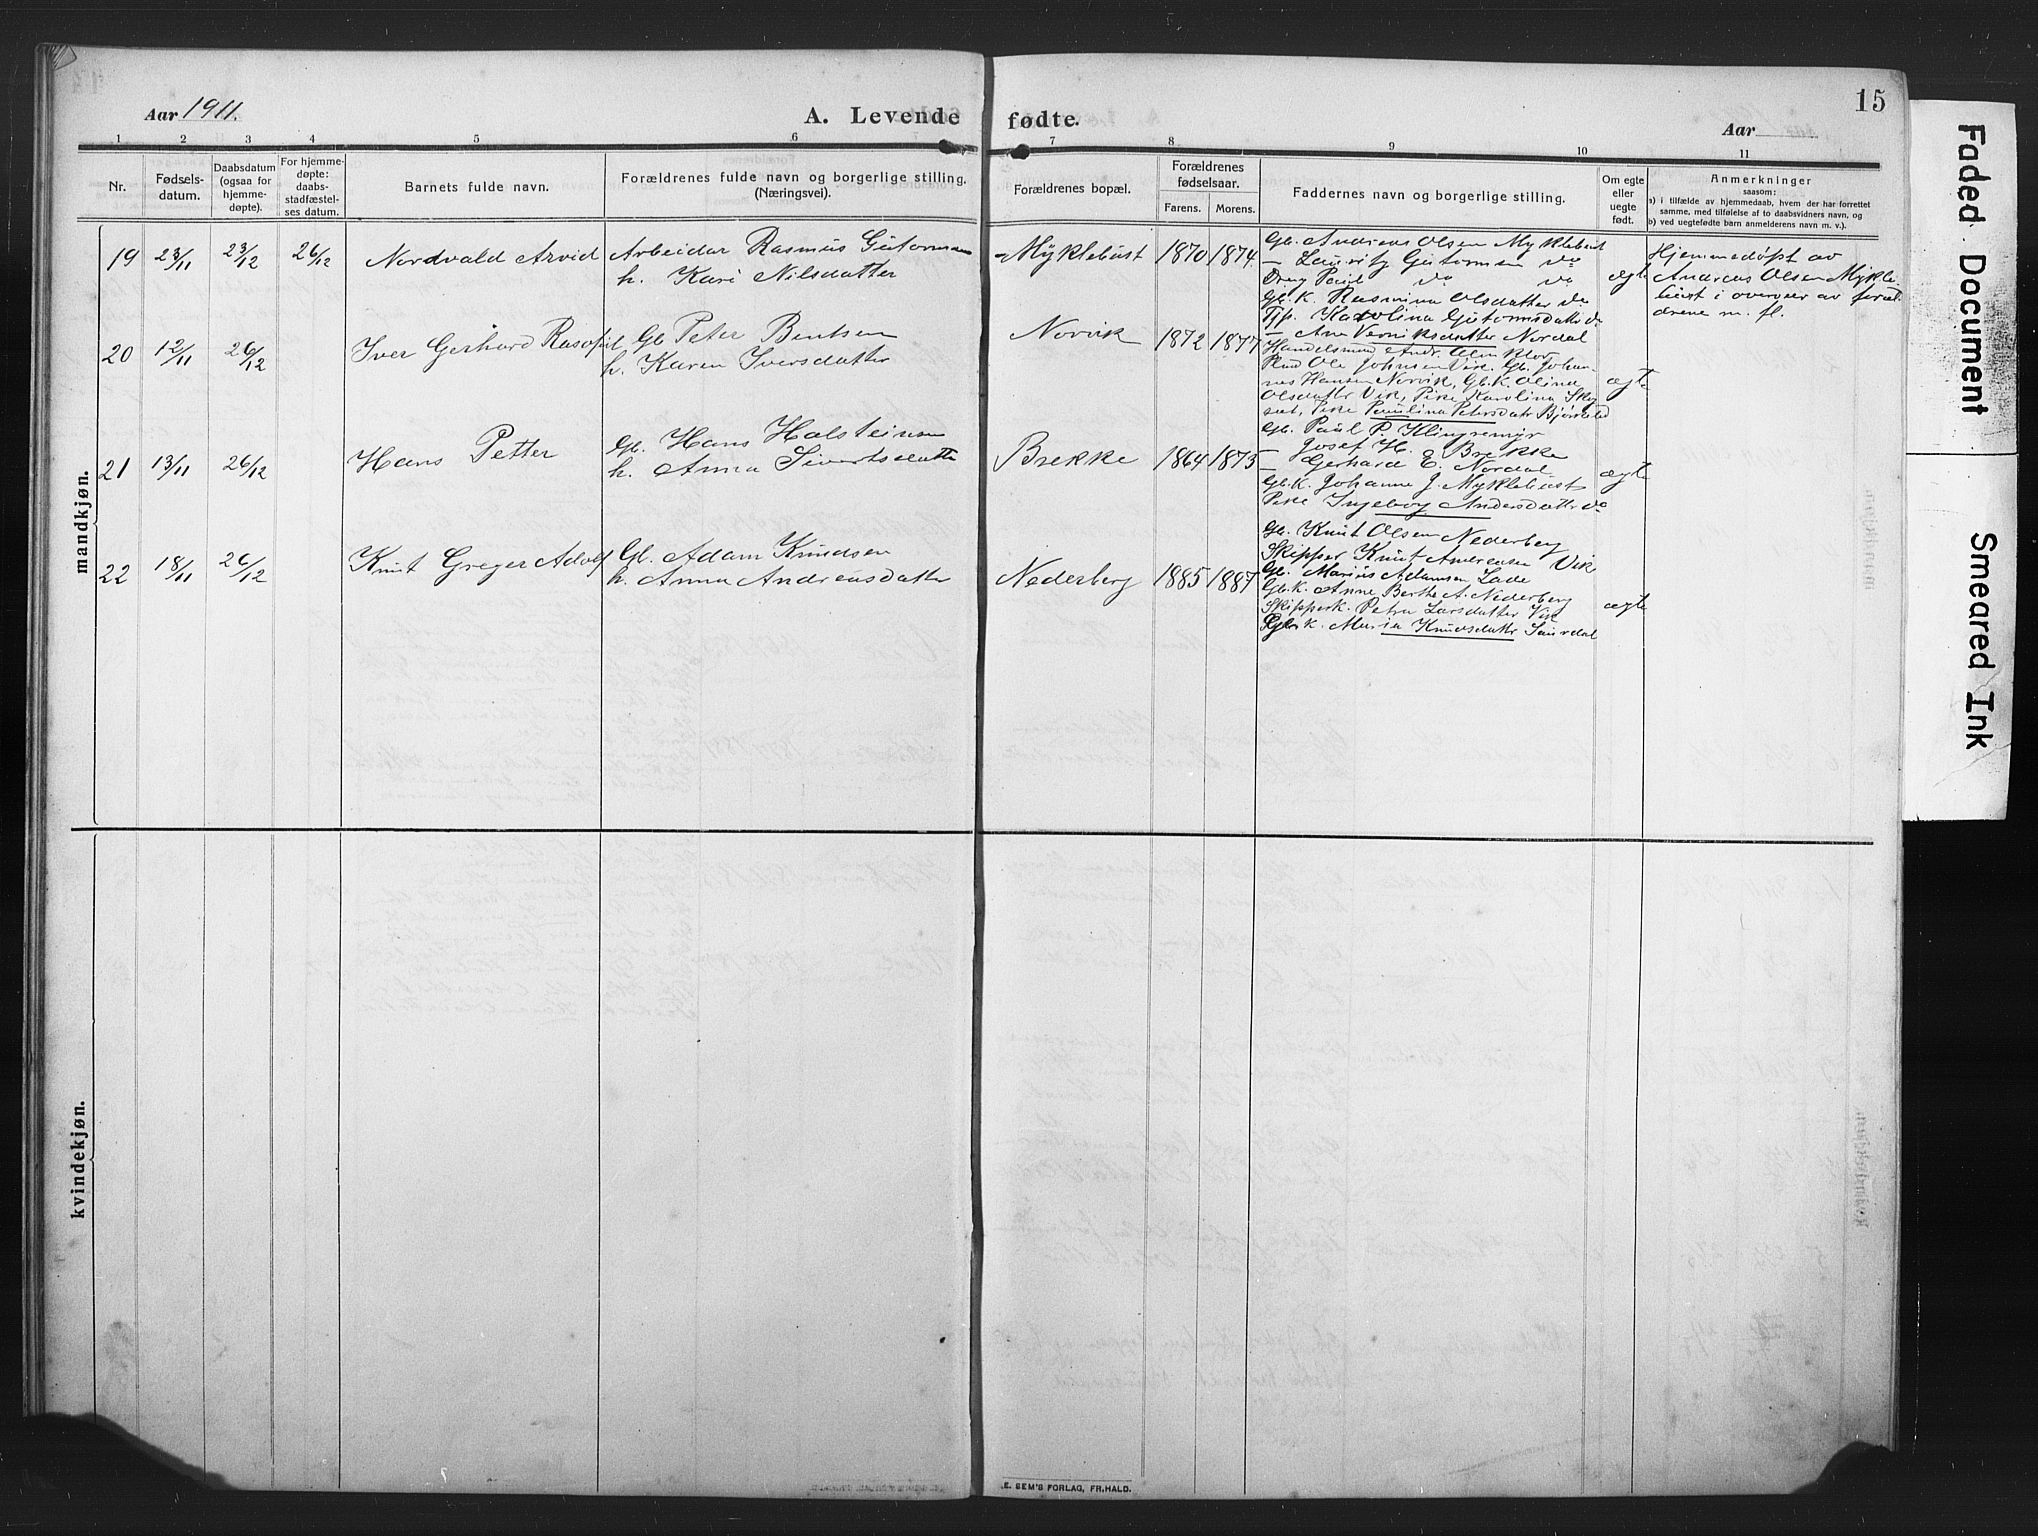 15
Aar 1911.
A. Levende fødte.
Aar
1 2 3 4 5 6 7 7 8 9 10 11
Nr.
Fødsels-
datum.
Daabsdatum
(ogsaa for
hjemme-
døpte).
For hjemme-
døpte:
daabs-
stadfæstel-
ses datum.
Barnets fulde navn.
Forældrenes fulde navn og borgerlige stilling.
(Næringsvei).
Forældrenes bopæl.
Forældrenes
fødselsaar.
Farens. Morens.
Faddernes navn og borgerlige stilling.
Om egte
eller
uegte
født.
Anmerkninger
saasom:
a) i tilfælde av hjemmedaab, hvem der har forrettet
samme, med tilføielse af to daabsvidners navn, og
b) ved uegtefødte barn anmelderens navn m. v.).
mandkjøn.
19 23/11 23/12 26/12 Nordvald Arvid
Arbeider Rasmus Gutormsen
h. Kari Nilsdatter
Myklebust 1870 1874
Gb. Andreas Olsen Myklebust
— Lauritz Gutormsen do
Dreng Paul do do
Gb.K. Rasmina Olsdatter do
Tjp. Karolina Gutormsdatter do
— Ane Verniksdatter Nordal
ægte
Hjemmedøpt av
Andreas Olsen Mykle-
bust i overvær av foræl-
drene m. fl.
20 12/11 26/12 Iver Gerhard
Gb Peter Bentsen
h. Karen Iversdatter
Norvik 1872 1877
Handelsmand Andr. Olsen
Ole Johnsen Vik. Gb. Johan-
nes Hansen Norvik, Gb.K. Olina
Olsdatter Vik, Pike Karolina
Pike Paulina Petersdatr
ægte
21 13/11 26/12 Hans Petter
Gb. Hans Holsteinsen
h. Anna Sivertsdatter
Brekke 1864 1873
Gb. Paul P. Klingremyr
— Josef H. Brekke
— Gerhard E. Nordal
Gb.K. Johanne J. Myklebust
Pike Ingeborg Andersdatter do
ægte
22 18/11 26/12 Knut Greger Adolf
Gb. Adam Knudsen
h. Anna Andreasdatter
Nederberg 1885 1887
Gb. Knut Olsen Nederberg
Skipper Knut Andreasen Vik
Gb. Marius Adamsen Lade
Gb.K. Anne Berthe A. Nederberg
Skipperk. Petra Larsdatter Vik
Maria Knudsdattr
ægte
kvindekjøn.
E. SEM'S FORLAG, FR.HALD.
Faded. Document
Smeared Ink